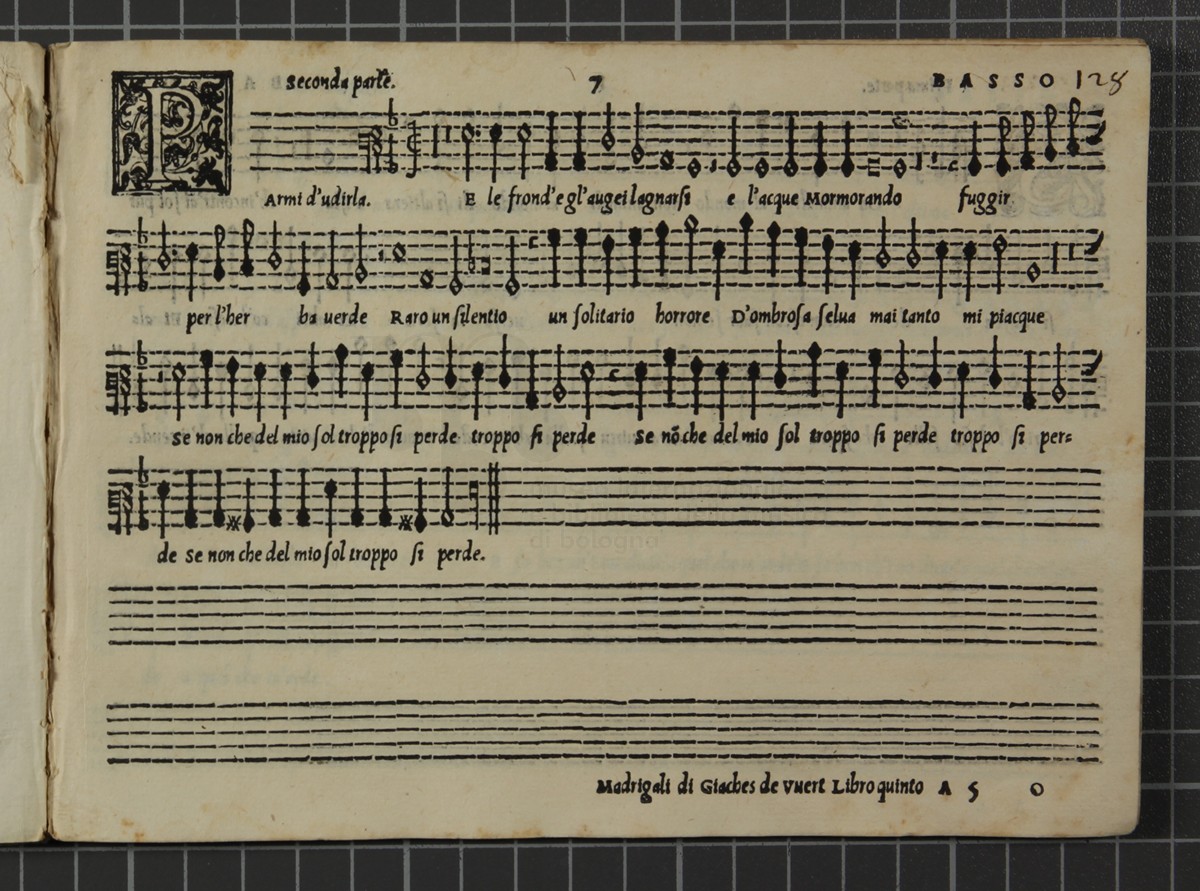 Seconda parte. 7 BASSO 128
P Armi d'udirla. E le frond'e gl'augei lagnarsi e l'acque Mormorando fuggir
per l'her ba uerde Raro un silentio un solitario horrore D'ombrosa selua mai tanto mi piacque
se non che del mio sol troppo si perde troppo si perde se nõ che del mio sol troppo si perde troppo si per=
de se non che del mio sol troppo si perde.
di bologna
Madrigali di Giaches de Vuert Libro quinto A 5 O